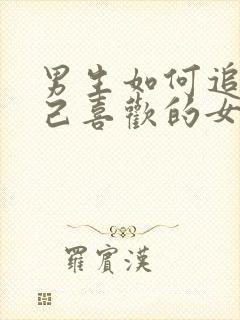 男生如何追
己喜歡的女
羅賓漢